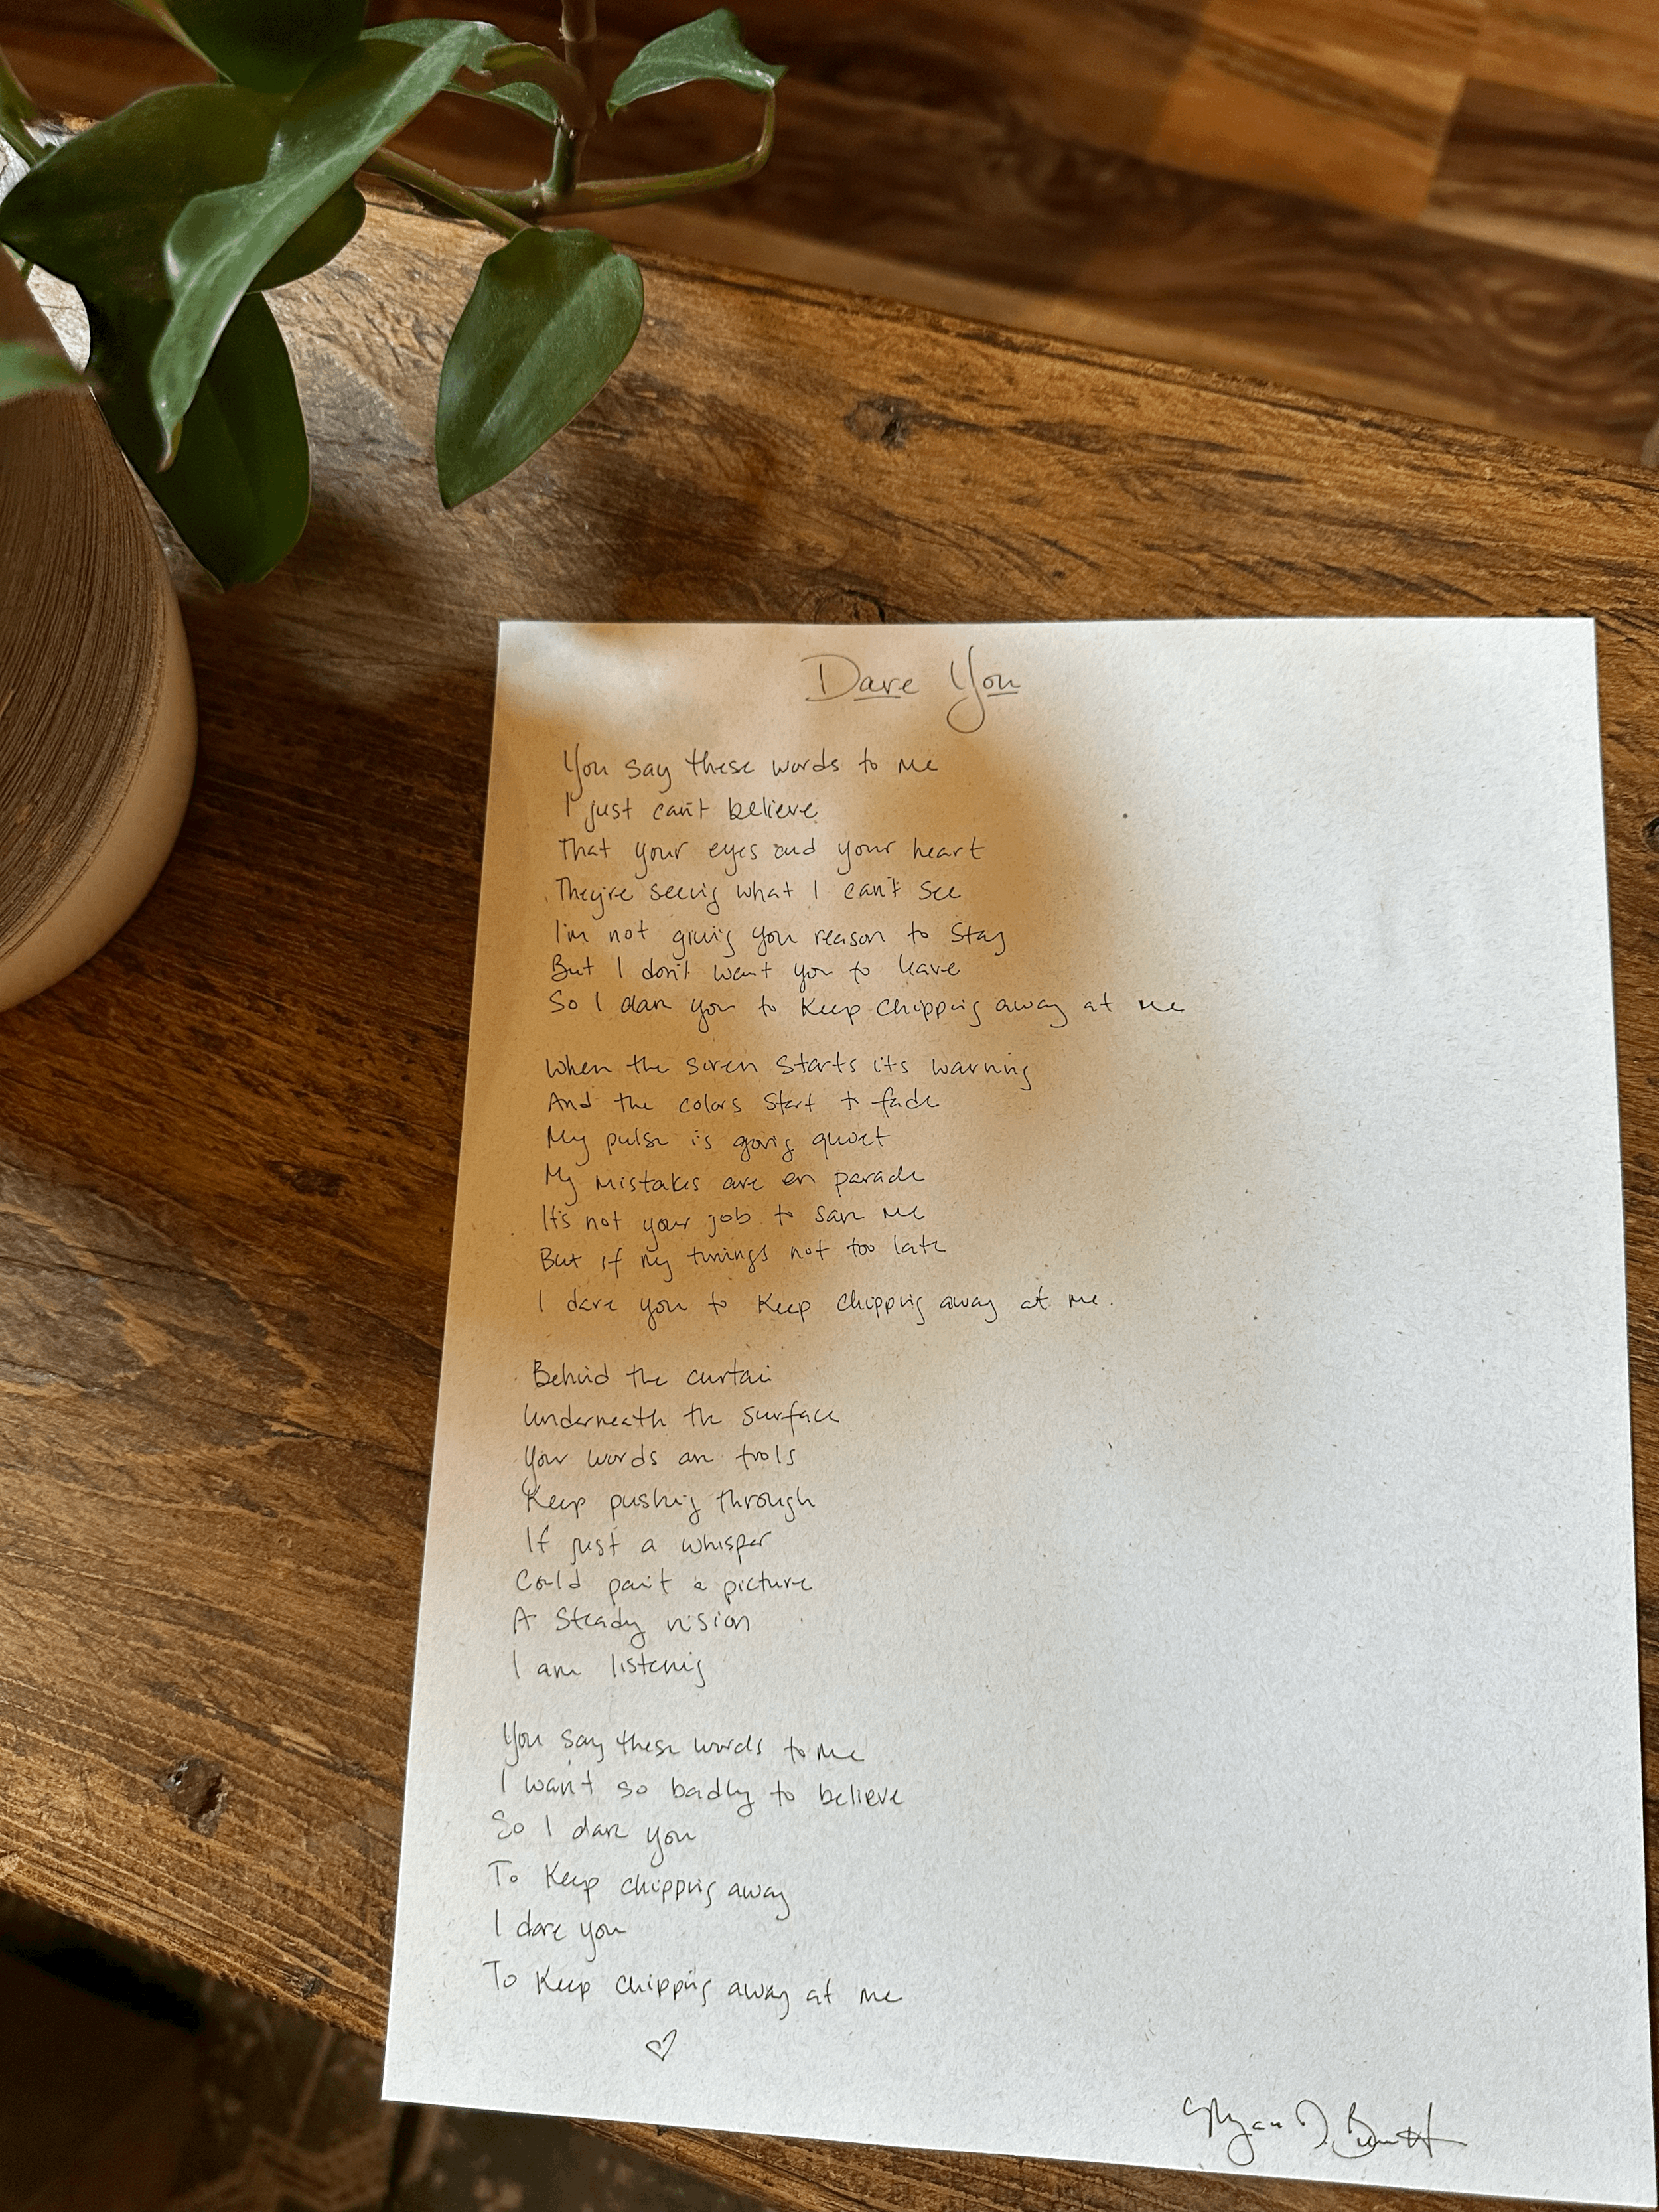 Dare You
You say these words to me
I just can't believe
That your eyes and your heart
They're seeing what I can't see
I'm not giving you reason to stay
But I don't want you to leave
So I dare you to keep chipping away at me
When the siren starts its warning
And the colors start to fade
My pulse is going quiet
My mistakes are on parade
It's not your job to save me
But if my timings not too late
I dare you to keep chipping away at me.
Behind the curtain
Underneath the surface
Your words are tools
Keep pushing through
If just a whisper
Could paint a picture
A steady vision
I am listening
You say these words to me
I want so badly to believe
So I dare you
To keep chipping away
I dare you
To keep chipping away at me